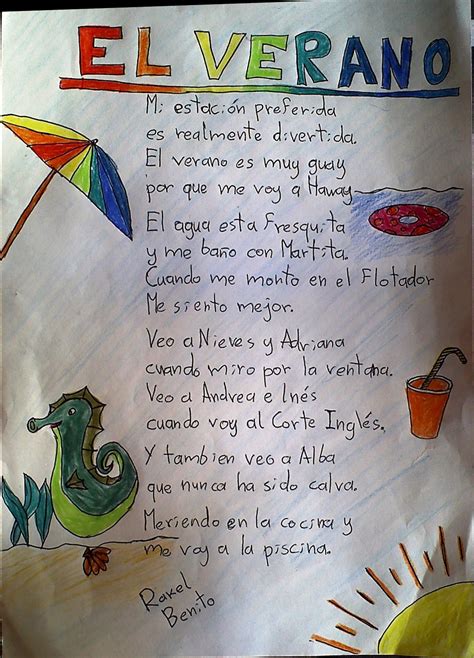 EL VERANO
Mi estación preferida
es realmente divertida.
El verano es muy guay
por que me voy a Haway
El agua esta fresquita
y me baño con Martita.
Cuando me monto en el Flotador
Me siento mejor.
Veo a Nieves y Adriana
cuando miro por la ventana.
Veo a Andrea e Inés
cuando voy al Corte Inglés.
Y tambien veo a Alba
que nunca ha sido calva.
Meriendo en la cocina y
me voy a la piscina.
Rakel
Benito